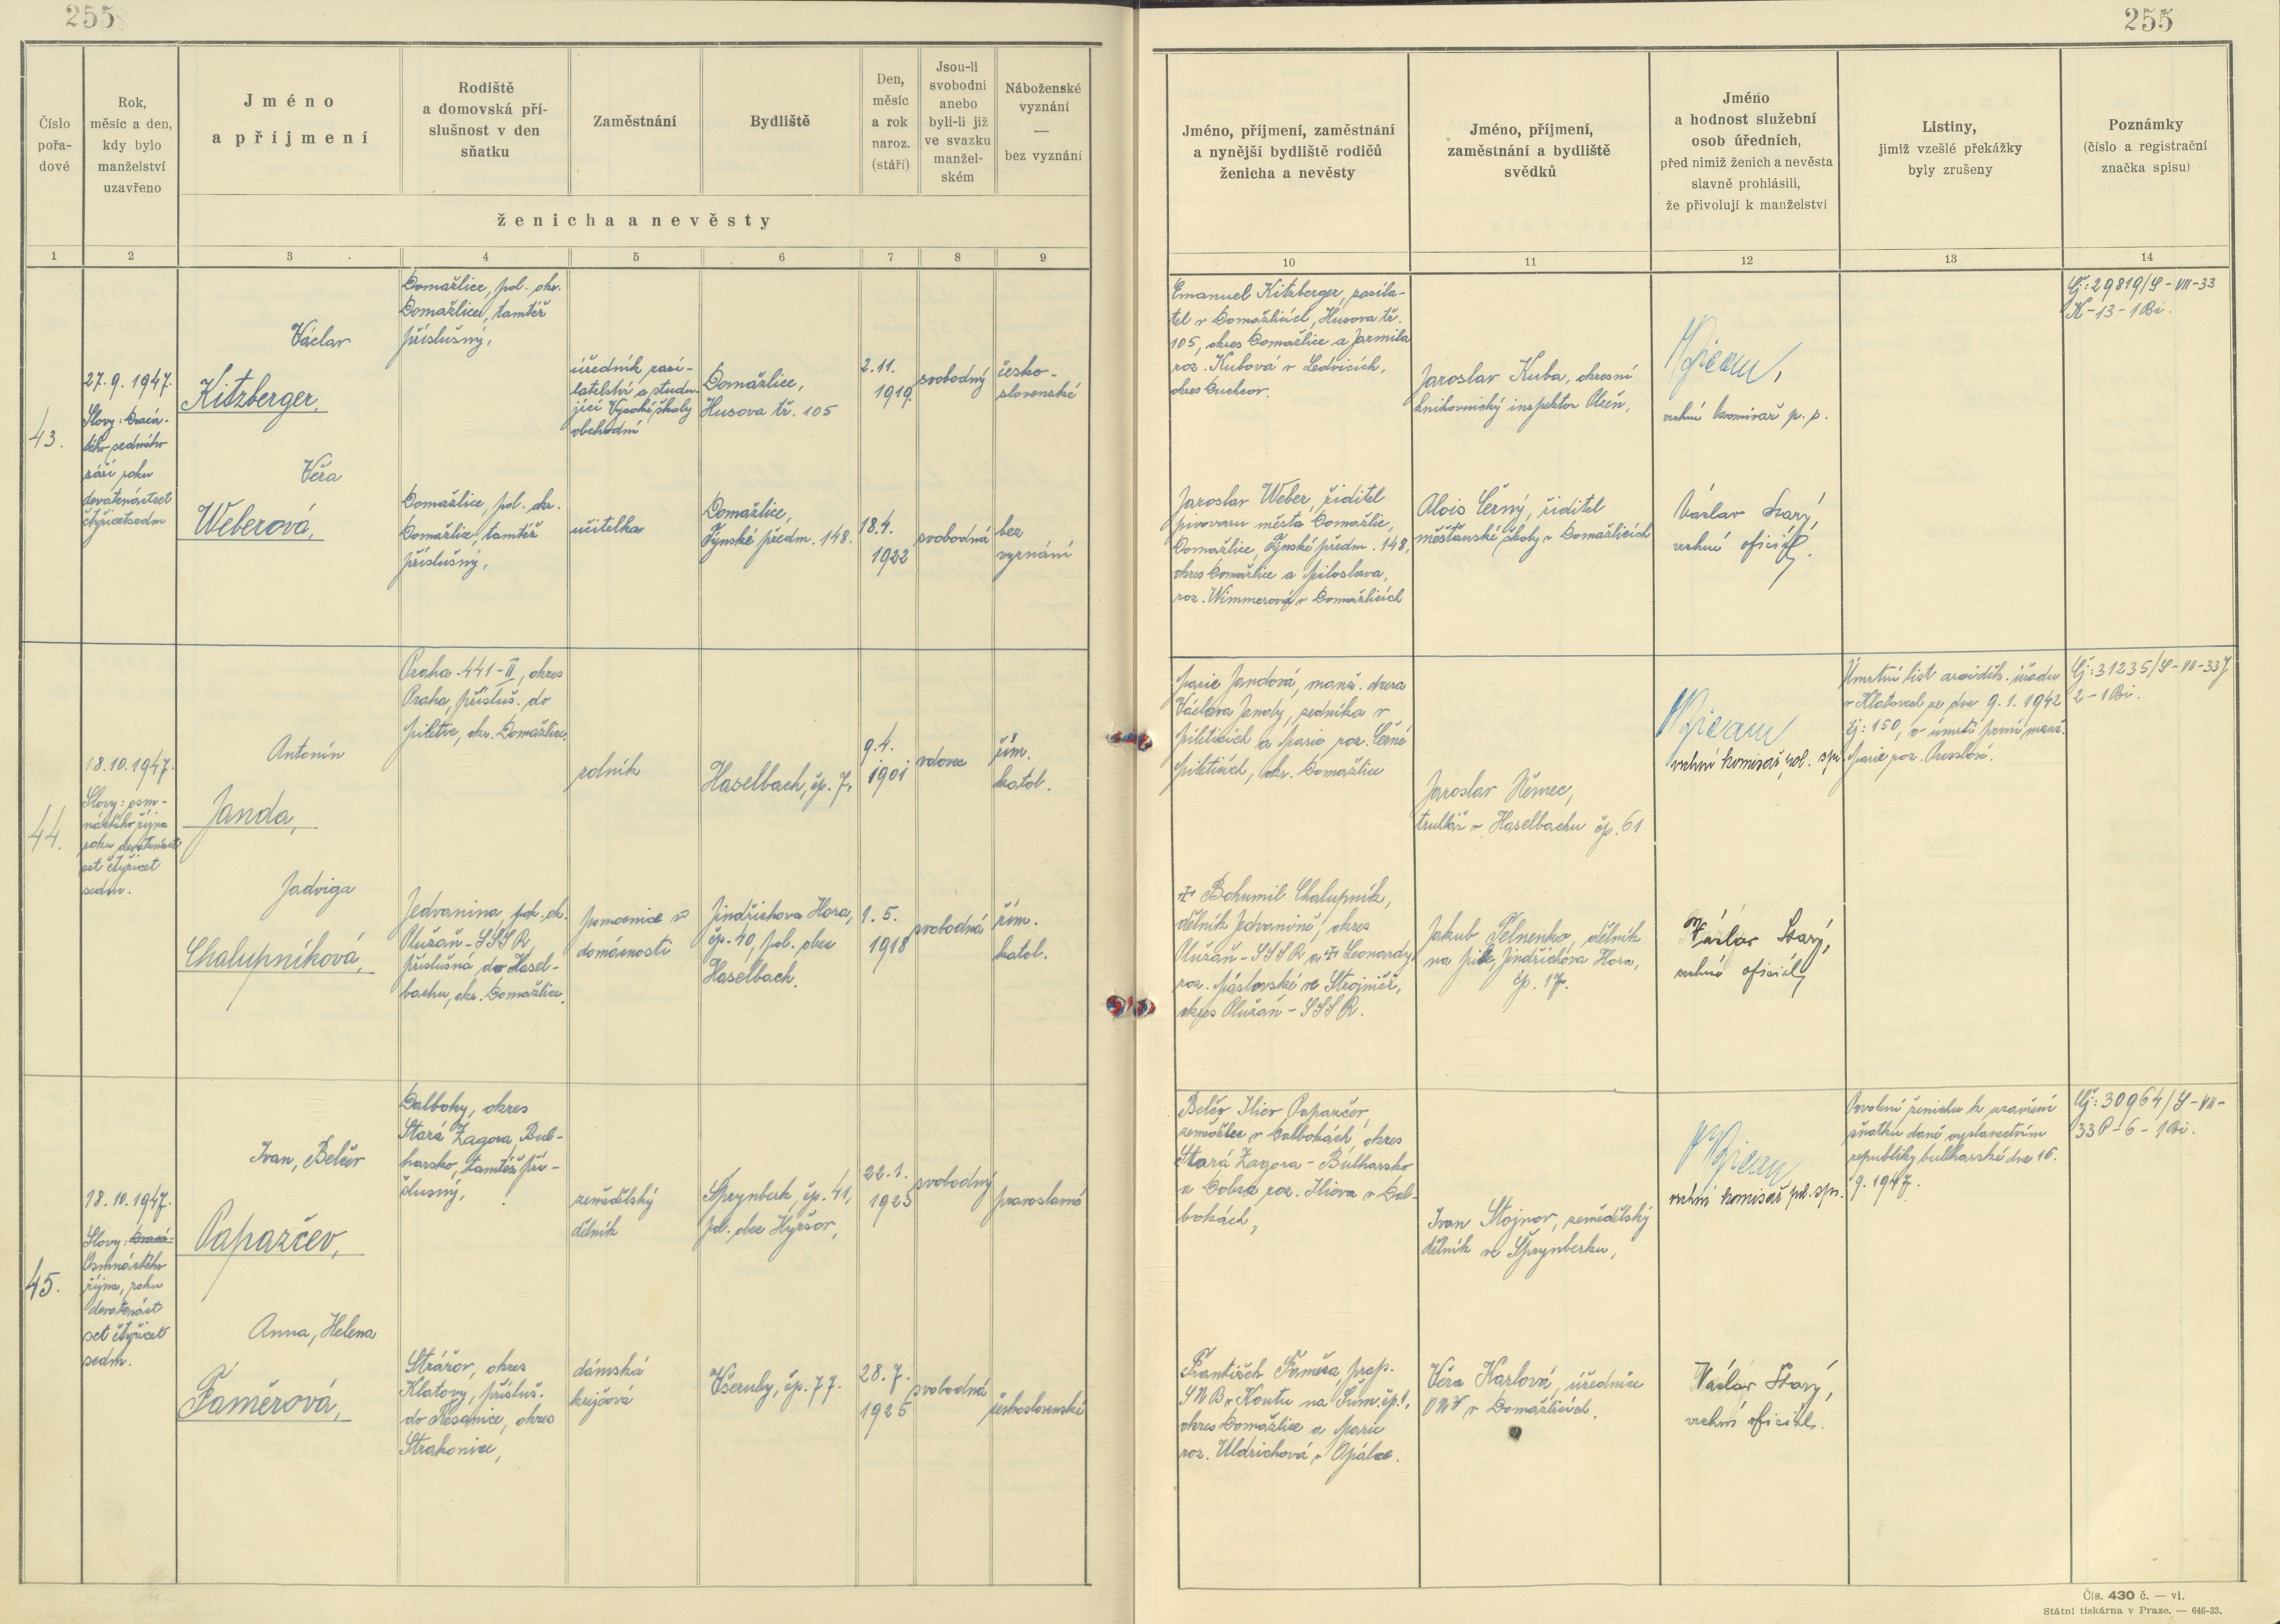 255
255
Číslo
pořa-
dové
Rok,
měsíc a den,
kdy bylo
manželství
uzavřeno
Jméno
a příjmení
Rodiště
a domovská pří-
slušnost v den
sňatku
Zaměstnání
Bydliště
Den,
měsíc
a rok
naroz.
(stáří)
Jsou-li
svobodni
anebo
byli-li již
ve svazku
manžel-
ském
Náboženské
vyznání
—
bez vyznání
ženicha a nevěsty
Jméno, příjmení, zaměstnání
a nynější bydliště rodičů
ženicha a nevěsty
Jméno, příjmení,
zaměstnání a bydliště
svědků
Jméno
a hodnost služební
osob úředních,
před nimiž ženich a nevěsta
slavně prohlásili,
že přivolují k manželství
Listiny,
jimiž vzešlé překážky
byly zrušeny
Poznámky
(číslo a registrační
značka spisu)
1 2 3 4 5 6 7 8 9 10 11 12 13 14
43.
27.9.1947.
Slovy: Dvacá-
tého sedmého
září roku
devatenáctset
čtyřicetsedm
Václav
Kitzberger,
Domažlice, pol. okr.
Domažlice, tamtéž
příslušný,
úředník zasí-
latelství a studu-
jící Vysoké školy
obchodní
Domažlice,
Husova tř. 105
2.11.
1919.
svobodný
česko-
slovenské
Emanuel Kitzberger, zasíla-
tel v Domažlicích, Husova tř.
105, okres Domažlice a Jarmila
roz. Kubová v Ledvicích,
okres Duchcov.
Jaroslav Kuba, okresní
knihovnický inspektor Plzeň,
vrchní komisař p. s.
Čj: 29819/S-VII-33
K-13-1Bi.
Věra
Weberová,
Domažlice, pol. okr.
Domažlice, tamtéž
příslušný,
učitelka
Domažlice,
Týnské předm. 148.
18.4.
1922
svobodná
bez
vyznání
Jaroslav Weber, ředitel
pivovaru města Domažlic,
Domažlice, Týnské předm. 148,
okres Domažlice a Miloslava,
roz. Wimmerová v Domažlicích
Alois Černý, ředitel
měšťanské školy v Domažlicích
Václav Starý,
vrchní oficiál.
44.
18.10.1947.
Slovy: osm-
náctého října
roku devatenáct
set čtyřicet
sedm.
Antonín
Janda,
Praha-441-II, okres
Praha, přísluš. do
Miletic, okr. Domažlice.
rolník
Haselbach, čp. 7,
9.4.
1901
vdovec
řím.
katol.
Marie Jandová, manž. dcera
Václava Jandy, zedníka v
Mileticích a Marie roz. Černé
Mileticích, okr. Domažlice
Jaroslav Němec,
truhlář v Haselbachu čp. 61
vrchní komisař pol. spr.
Úmrtní list arciděk. úřadu
v Klatovech ze dne 9.1.1942
čj: 150, o úmrtí první manž.
Marie roz.
Čj: 31235/S-VII-33J
2-1Bi.
Jadviga
Chalupníková,
Jedvanina, pol. ok.
Olužaň-SSSR,
příslušná do Hasel-
bachu, okr. Domažlice.
pomocnice v
domácnosti
Jindřichova Hora,
čp-40, pol. obec
Haselbach.
1.5.
1918
svobodná
řím.
katol.
Bohumil Chalupník,
dělník Jedvanině, okres
Olužaň-SSSR a Leonardy
roz. Máslovské ve Strojniči,
okres Olužaň-SSSR.
Jakub Telnenko, dělník
na pile, Jindřichova Hora,
čp. 17.
Václav Starý,
vrchní oficiál
45.
18.10.1947.
Slovy:
Osmnáctého
října, roku
devatenáct
set čtyřicet
sedm.
Ivan, Belčev
Papazčev,
Dalboky, okres
Stará Zagora, Bul-
harsko, tamtéž pří-
slušný,
zemědělský
dělník
Sprynberk, čp. 41,
pol. obec Hyršov,
22.1.
1925
svobodný
pravoslavné
Belčo Iliev Papazčev,
zemědělec v Dalbokách, okres
Stará Zagora-Bulharsko
a Dobra roz. Ilieva v Dal-
bokách,
Ivan Stojnov, zemědělský
dělník ve Sprynberku,
vrchní komisař pol. spr.
Povolení ženichu k uzavření
sňatku dané vyslanectvím
republiky bulharské dne 16.
9.1947.
Čj: 30964/S-VII-
33P-6-1Bi.
Anna, Helena
Faměrová,
Strážov, okres
Klatovy, přísluš.
do Řesanice, okres
Strakonice,
dámská
krejčová
Všeruby, čp. 77.
28.7.
1925
svobodná
československé
František Faměra, prap.
SNB v Koutu na Šum. čp. 1,
okres Domažlice a Marie
roz. Uldrichová v Opálce.
Věra Karlová, úřednice
ONV v Domažlicích.
Václav Starý,
vrchní oficiál.
Čís. 430 č. — vl.
Státní tiskárna v Praze. — 646-33.